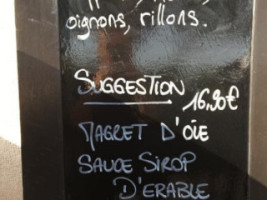 oignons, rillons.
SUGGESTION
16,90€
MAGRET D'OIE
SAUCE SIROP
D'ERABLE